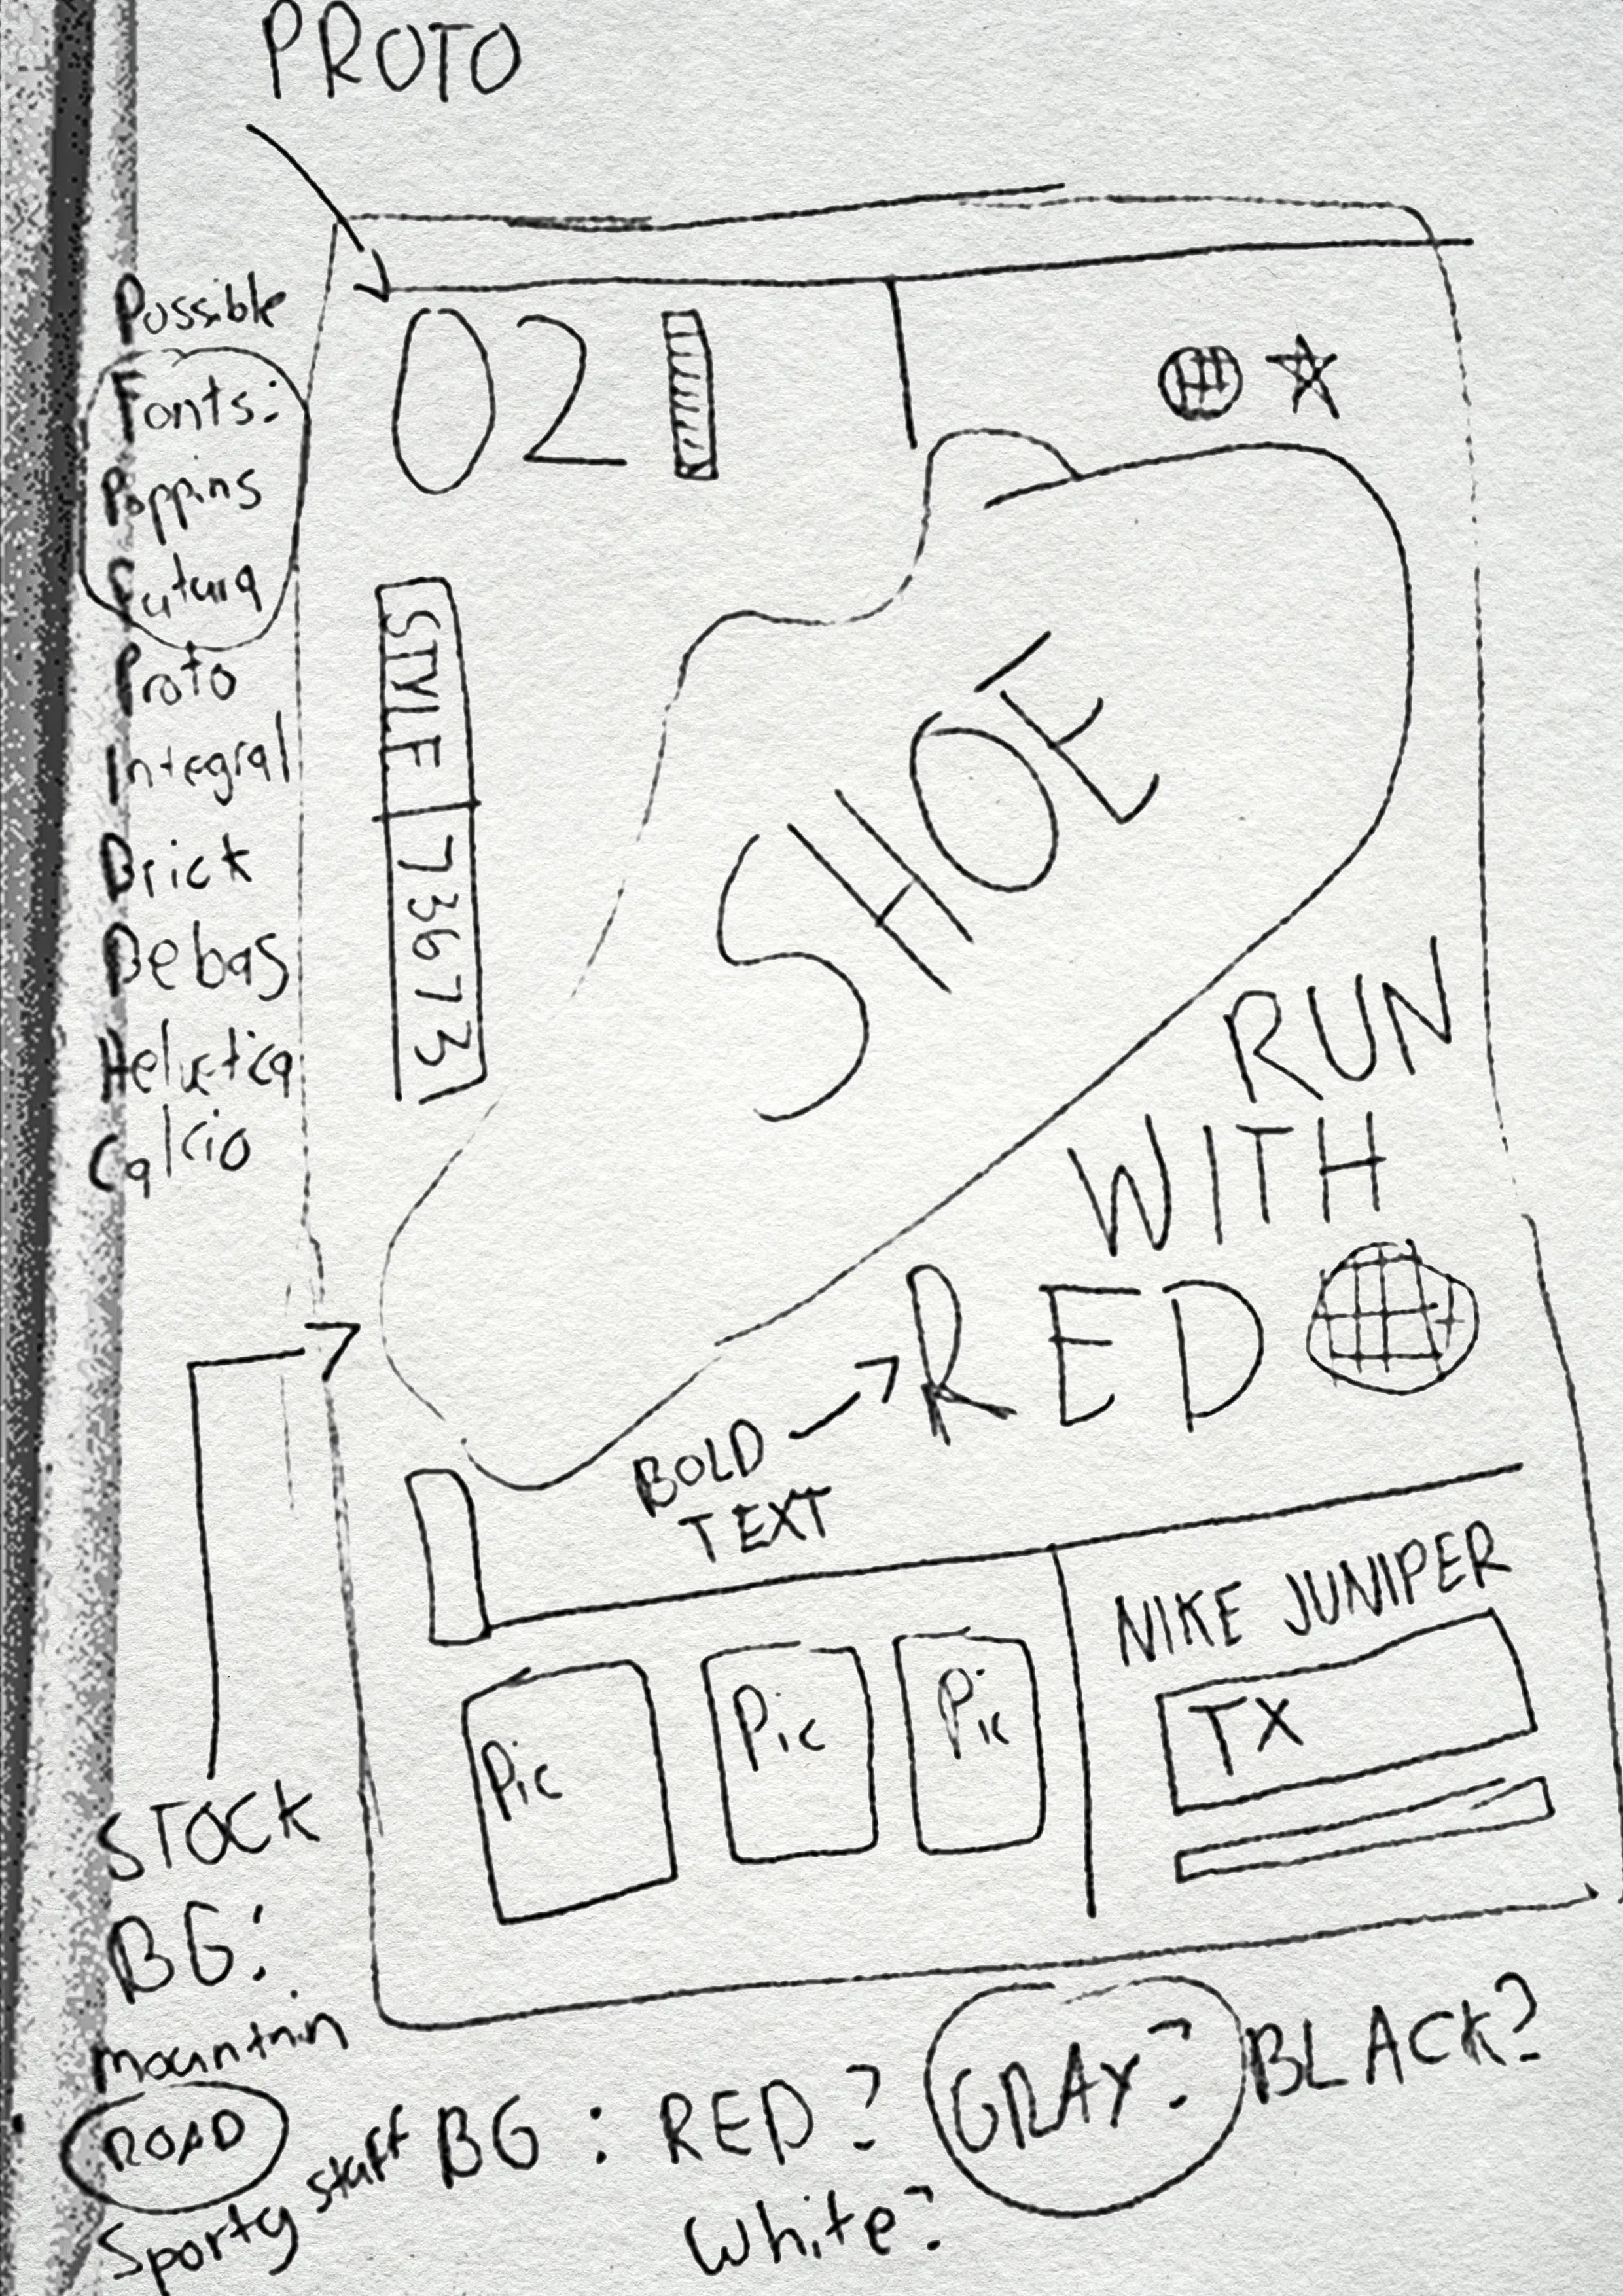 PROTO
Possible
Fonts:
Poppins
Futura
Proto
Integral
Brick
Bebas
Helvetica
Calcio
02
STYLE | 73673
SHOE
RUN
WITH
RED
BOLD
TEXT
NIKE JUNIPER
TX
Pic
Pic
Pic
STOCK
BG:
mountain
ROAD
Sporty stuff
BG: RED? GRAY? BLACK?
White?